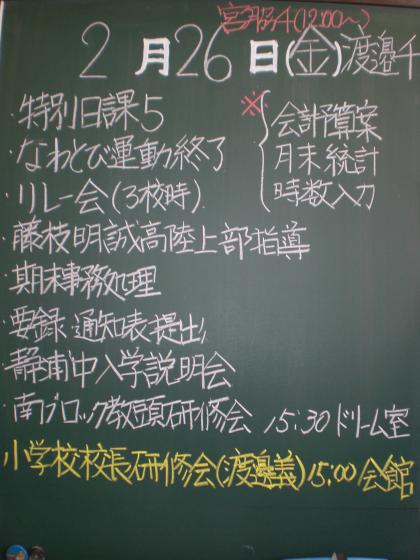 宮脇千(12:00~)
2月26日(金)渡邉千
・特別日課5
・なわとび運動終了
・リレー会(3校時)
※ 会計予算案
月末統計
時数入力
・藤枝明誠高陸上部指導
・期末事務処理
・要録・通知表提出
・静浦中入学説明会
・南ブロック教頭研修会 15:30 ドリーム室
小学校校長研修会(渡邉義)15:00 会館